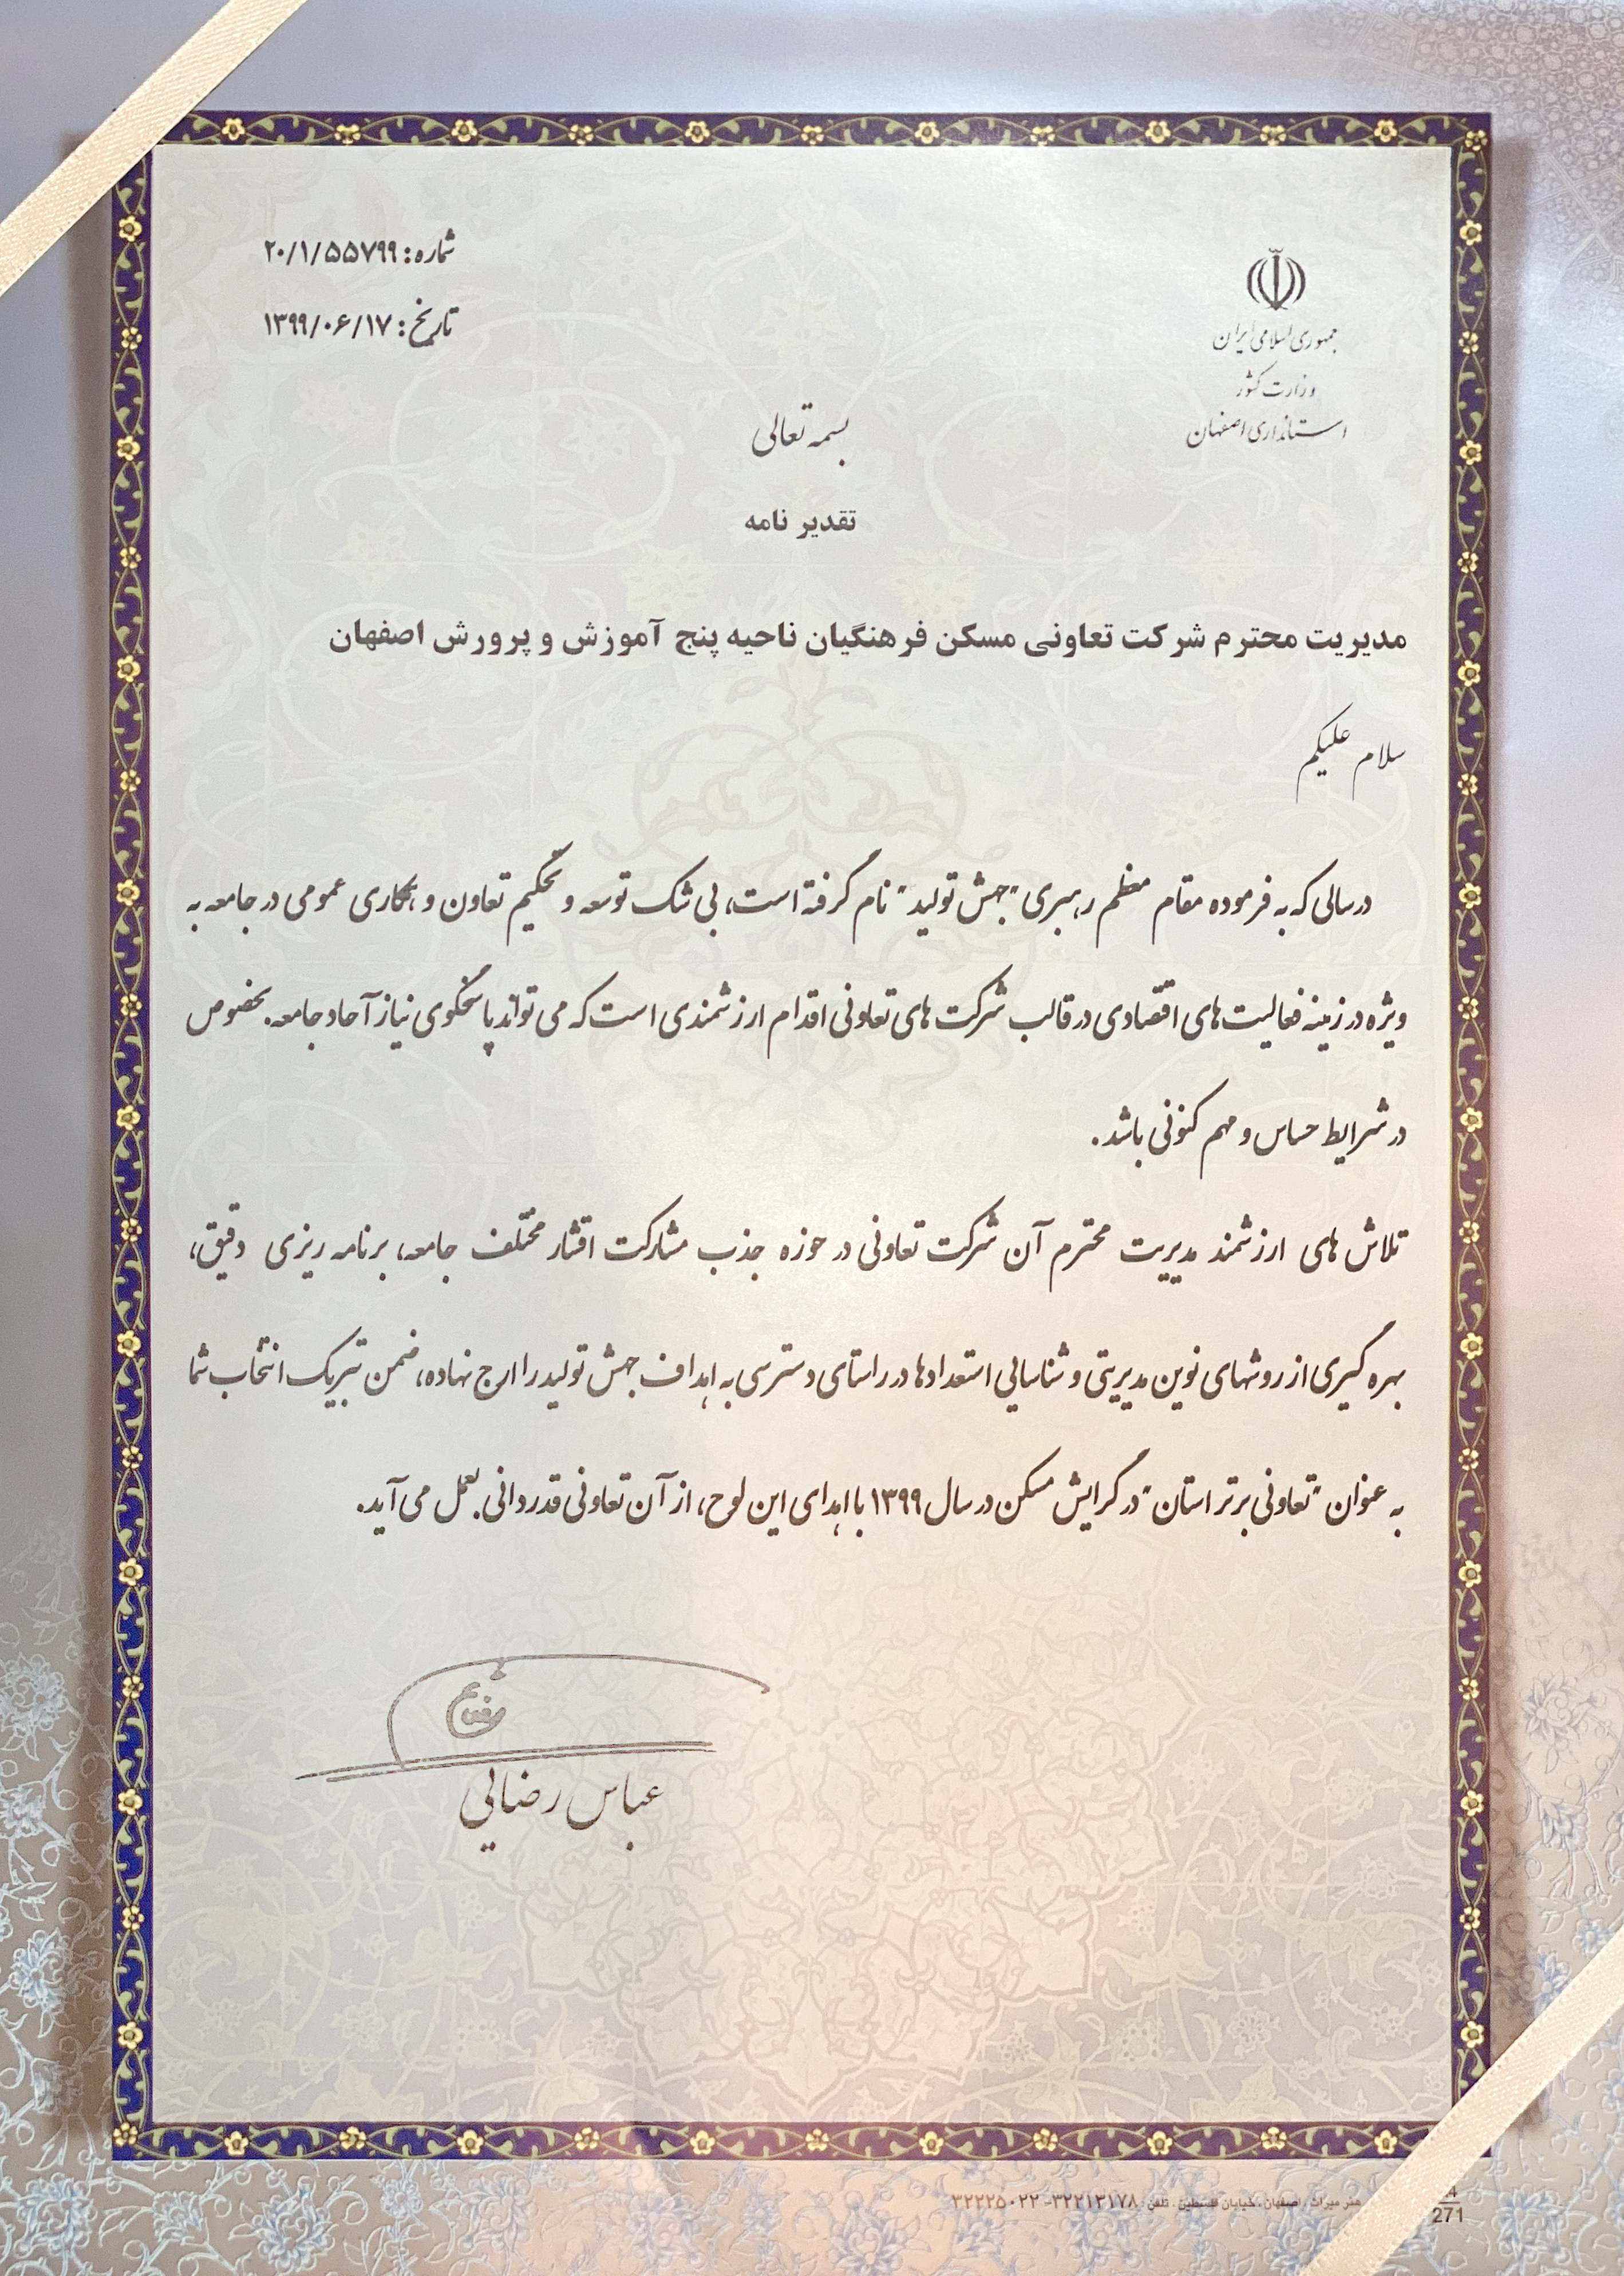 شماره: ۲۰/۱/۵۵۷۹۹
تاریخ: ۱۳۹۹/۰۶/۱۷
جمهوری اسلامی ایران
وزارت کشور
استانداری اصفهان
بسمه تعالی
تقدیر نامه
مدیریت محترم شرکت تعاونی مسکن فرهنگیان ناحیه پنج آموزش و پرورش اصفهان
سلام علیکم
درسالی که به فرموده مقام معظم رهبری "جهش تولید" نام گرفته است، بی شک توسعه و تحکیم تعاون و همکاری عمومی در جامعه به
ویژه در زمینه فعالیت های اقتصادی در قالب شرکت های تعاونی اقدام ارزشمندی است که می تواند پاسخگوی نیاز آحاد جامعه. بخصوص
در شرایط حساس و مهم کنونی باشد.
تلاش های ارزشمند مدیریت محترم آن شرکت تعاونی در حوزه جذب مشارکت اقشار مختلف جامعه، برنامه ریزی دقیق،
بهره گیری از روشهای نوین مدیریتی و شناسایی استعدادها در راستای دسترسی به اهداف جهش تولید را ارج نهاده، ضمن تبریک انتخاب شما
به عنوان "تعاونی برتر استان" در گرایش مسکن در سال ۱۳۹۹ با اهدای این لوح، از آن تعاونی قدردانی بعمل می آید.
عباس رضایی
هنر میراث . اصفهان . خیابان فلسطین . تلفن : ۳۲۲۱۳۱۷۸-۳۲۲۲۵۰۲۲
271